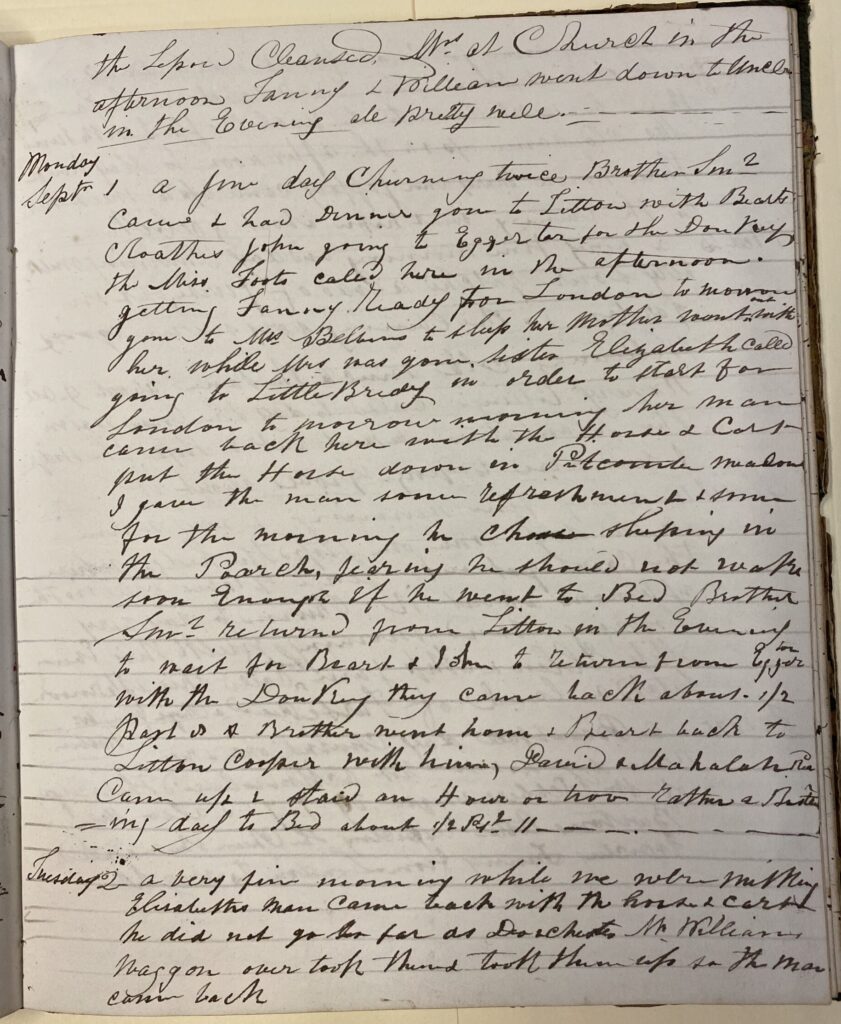 the Leper Cleansed. Mrs at Church in the
afternoon Fanny & William went down to Uncles
in the Evening all Pretty well. —
Monday
Septr 1 a fine day Churning twice Brother Saml
Came & had Dinner gon to Litton with Bearts
Cloathes John going to Eggerton for the Donkey
the Miss Foots called here in the afternoon.
getting Fanny Ready for London to morrow
gon to Mrs Bellows to sleep her Mother went out with
her, while Mrs was gone, sister Elizabeth called
going to Little Bredy in order to start for
London to morrow morning her man
came back here with the Horse & Cart
put the Horse down in Pitcombe meadow
I gave the man some refreshment & some
for the morning he chose sleeping in
the Poarch, fearing he should not wake
soon Enough if he went to Bed Brother
Saml returned from Litton in the Evening
to wait for Beart & John to return from Eggerton
with the Donkey they came back about 1/2
past 8 & Brother went home & Beart back to
Litton Cooper with him, David & Mahalah
Came up & staid an Hour or two rather a Bust
=ing day to Bed about 1/2 Pst 11 — — —
Tuesday 2 a very fine morning while we were milking
Elizabeths man came back with the horse & cart
he did not go so far as Dorchester Mr Williams
Waggon over took them & took them up so the man
came back